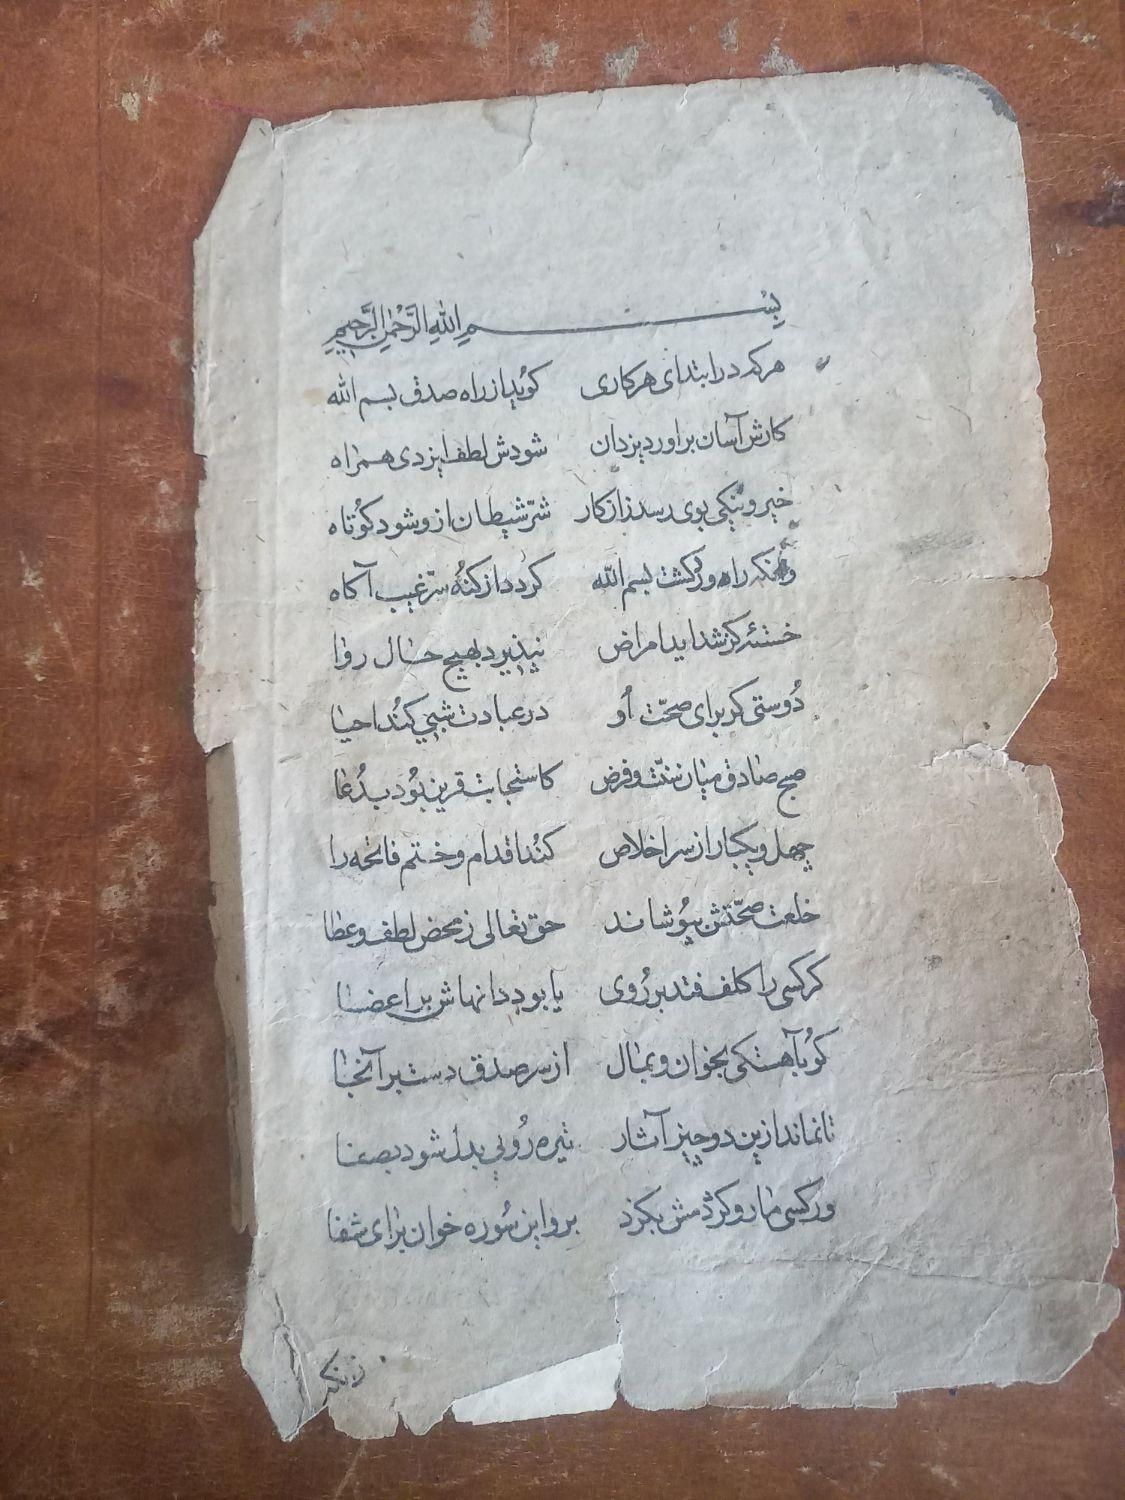 بِسْمِ اللهِ الرَّحْمٰنِ الرَّحِيمِ
هرکه در ابتدای هر کاری کوید از راه صدق بسم الله
کارش آسان براورد یزدان شودش لطف ایزدی همراه
خیر و نیکی بوی رسد زان کار شرّ شیطان ازو شود کوتاه
وانکه راه ورکشت بسم الله کردد از کنه سرّ غیب آکاه
خستئه کز شداید امراض نپذیرد بهیچ حال روا
دوستی کر برای صحّت او در عبادت شبی کند احیا
صبح صادق میان سنّت و فرض کاستجابت قرین بود بدعا
چهل و یکبار از سر اخلاص کند اقدام و ختم فاتحه را
خلعت صحّتش بپوشاند حق تعالی ز محض لطف و عطا
کر کسی را کلف فتد بر روی یا بود دانهاش بر اعضا
کو بآهستکی بخوان و بمال از سر صدق دست بر آنجا
تا نماند ازین دو چیز آثار تیره رویی بدل شود بصفا
ور کسی مار و کژدمش بکزد برو این سوره خوان برای شفا